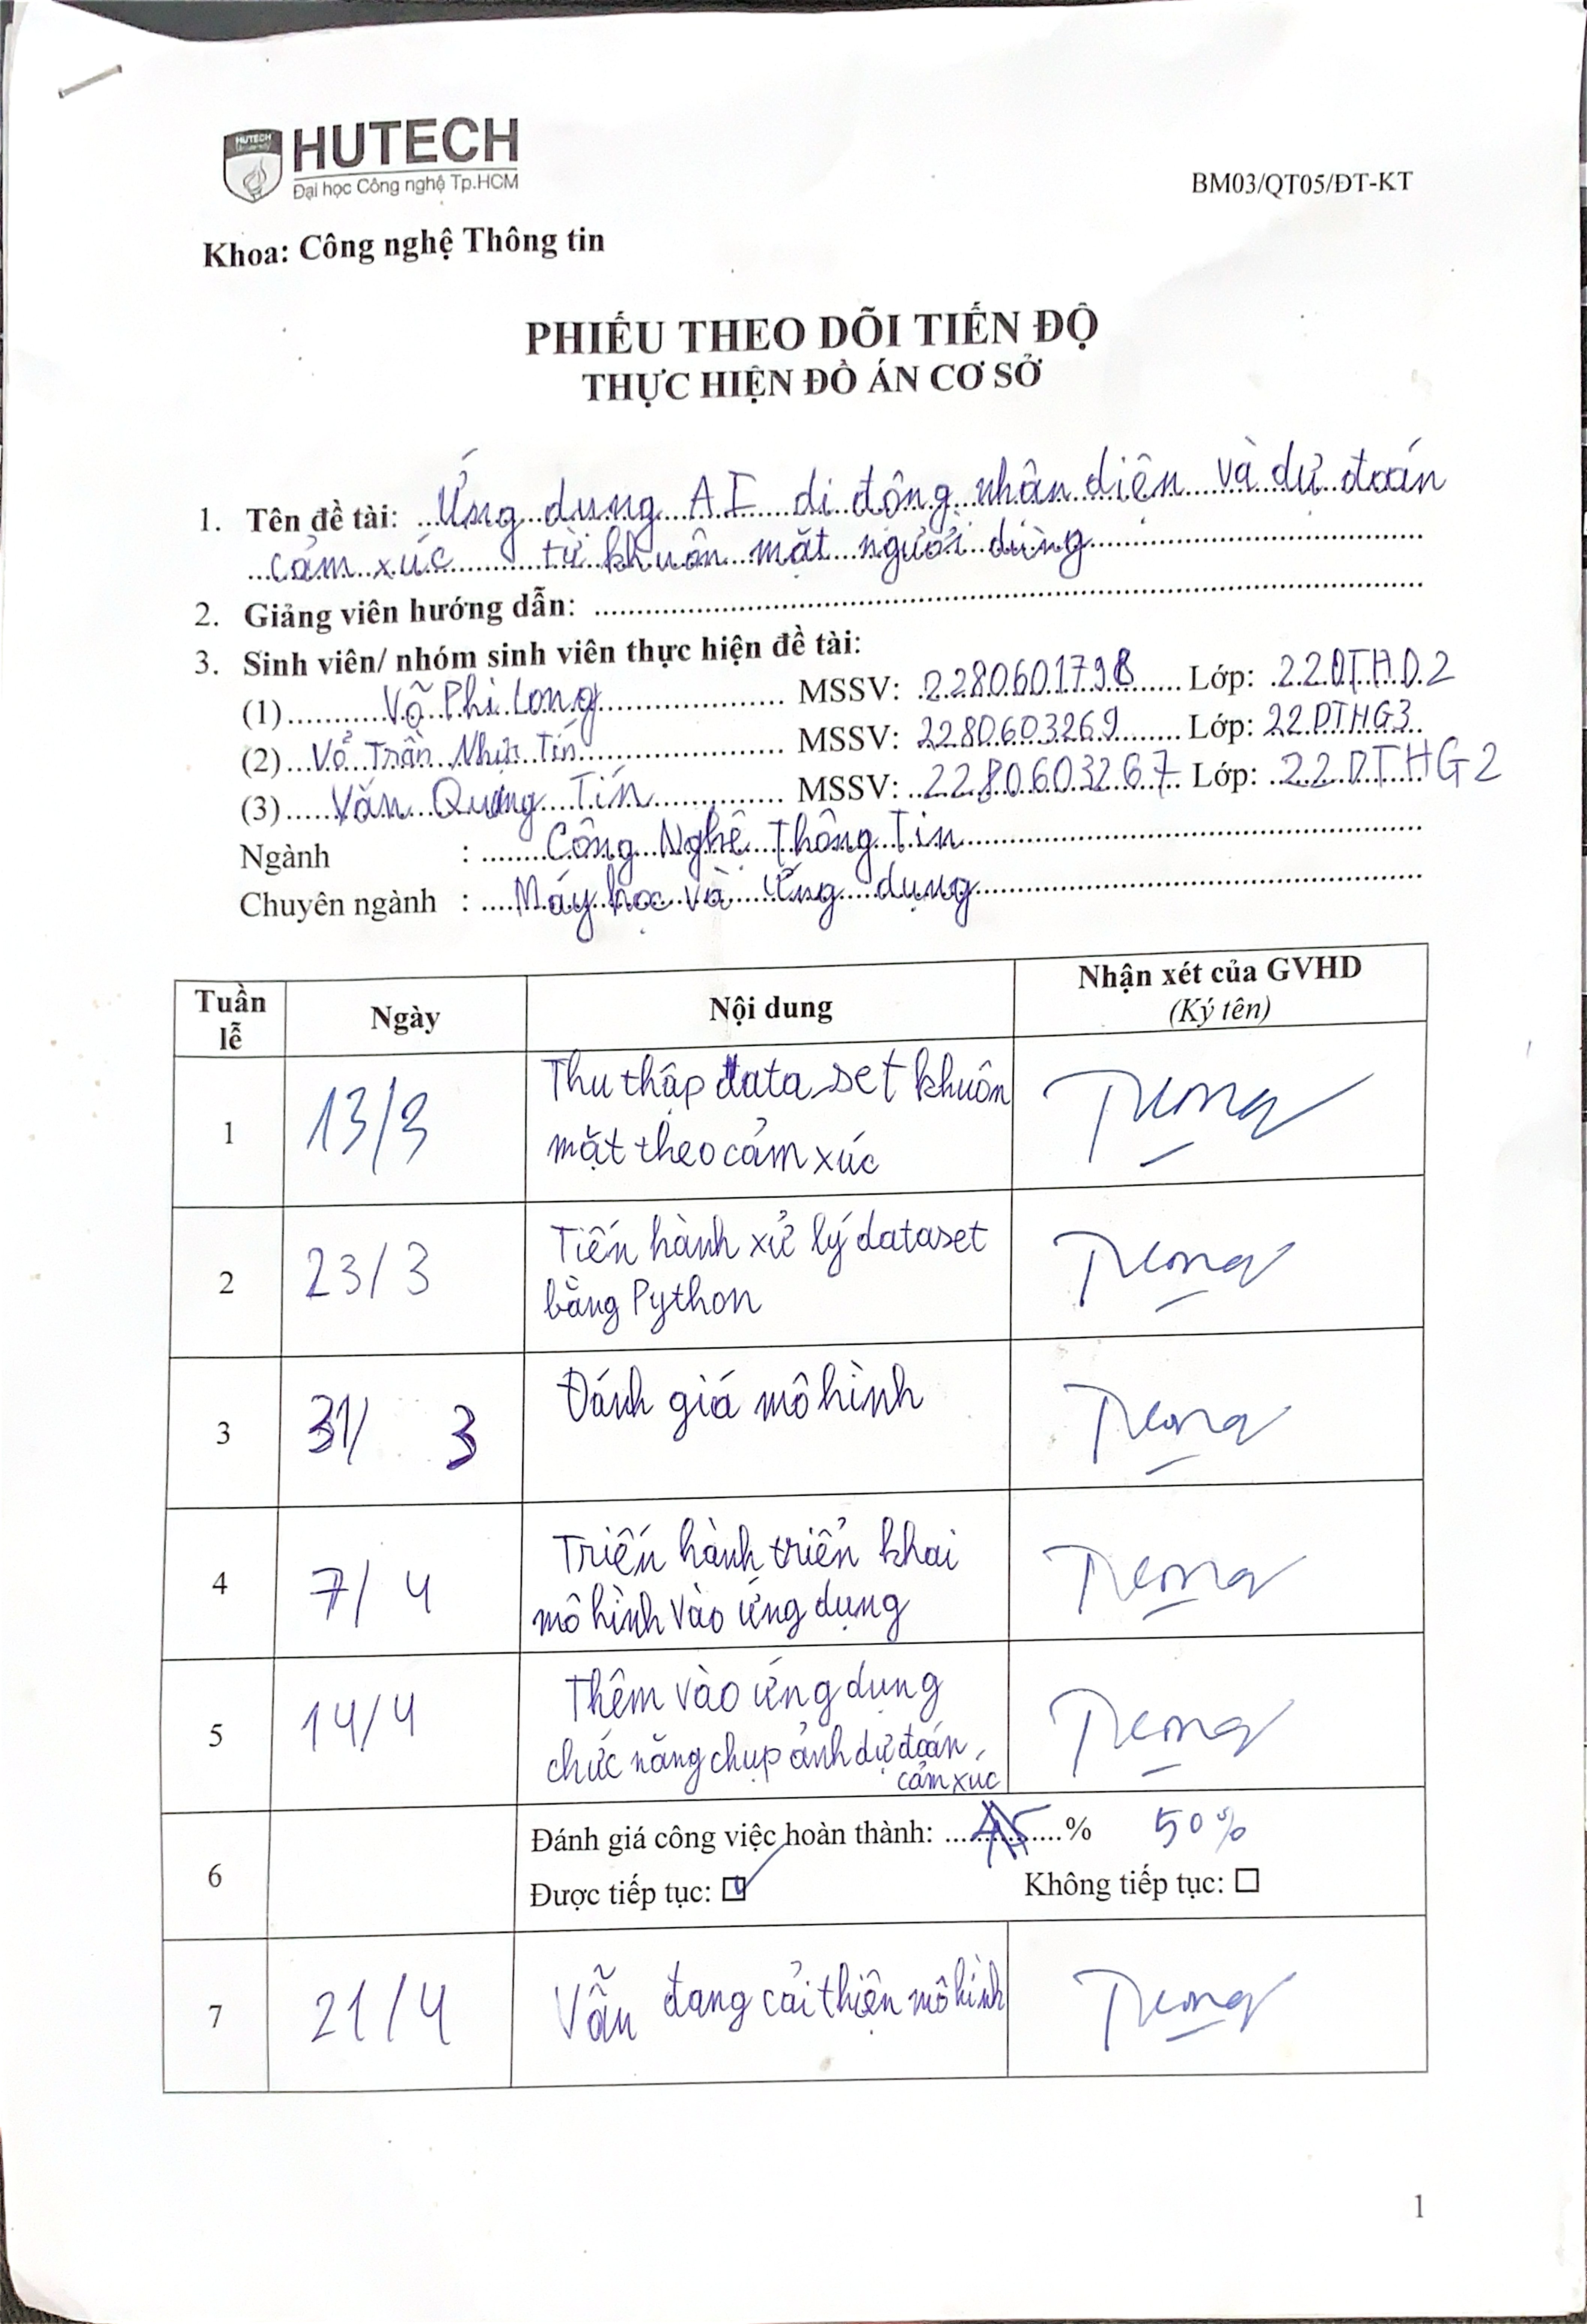 HUTECH
University
HUTECH
Đại học Công nghệ Tp.HCM
BM03/QT05/ĐT-KT
Khoa: Công nghệ Thông tin
PHIẾU THEO DÕI TIẾN ĐỘ
THỰC HIỆN ĐỒ ÁN CƠ SỞ
1. Tên đề tài: Ứng dụng AI di động nhận diện và dự đoán
cảm xúc từ khuôn mặt người dùng
2. Giảng viên hướng dẫn:
3. Sinh viên/ nhóm sinh viên thực hiện đề tài:
(1) Võ Phi Long MSSV: 2280601798 Lớp: 22DTHD2
(2) Võ Trần Nhựt Tín MSSV: 2280603269 Lớp: 22DTHG3
(3) Văn Quang Tín MSSV: 2280603267 Lớp: 22DTHG2
Ngành : Công Nghệ Thông Tin
Chuyên ngành : Máy học và Ứng dụng
Tuần lễ Ngày Nội dung Nhận xét của GVHD
(Ký tên)
1 13/3 Thu thập data set khuôn
mặt theo cảm xúc
2 23/3 Tiến hành xử lý dataset
bằng Python
3 31/ 3 Đánh giá mô hình
4 7/ 4 Triến hành triển khai
mô hình vào ứng dụng
5 14/4 Thêm vào ứng dụng
chức năng chụp ảnh dự đoán
cảm xúc
6 Đánh giá công việc hoàn thành: % 50%
Được tiếp tục: Không tiếp tục:
7 21/4 Vẫn đang cải thiện mô hình
1